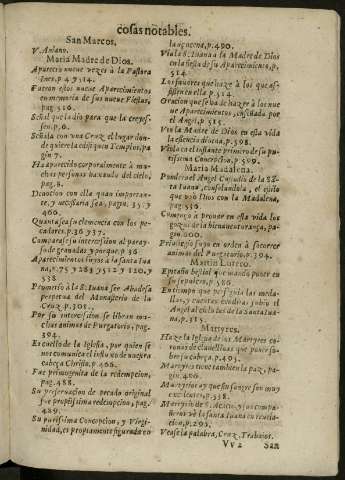 cosas notables.
San Marcos.
V. Aniano.
Maria Madre de Dios.
Apareciò nueve vezes à la Pastora
Ines, p. 4 y 514.
Fueron estos nueve Aparecimientos
en memoria de sus nueve Fiestas,
pag. 510.
Señal que la dio para que la creyes-
sen, p. 6.
Señala con una Cruz el lugar don-
de quiere la edifiquen Templos, pa
gin. 7.
Ha aparecido corporalmente à mu-
chas personas baxando del cielo,
pag. 8.
Devocion con ella quan importan-
te, y necessaria sea, pagin. 35. y
460.
Quanta sea su clemencia con los pe-
cadores. p. 36 y 37.
Comparase su intercession al paray-
so de granadas y porque. p. 36
Aparecimientos suyos à la santa Jua
na, p. 75 y 283 y 512 y 120, y
538
Prometiò à la S. Juana ser Abadesa
perpetua del Monasterio de la
Cruz. p. 302.
Por su intercesion se libran mu-
chas animas de Purgatorio, pag.
394.
Excuello de la Iglesia, por quien se
nos comunica el influxo de nuestra
cabeça Christo. p. 466.
Fue primogenita de la redempcion,
pag. 488.
Su preservacion de pecado original
fue propissima redempcion, pag.
489.
Su purissima Concepcion, y Virgi-
nidad, es propiamente figurada en
la açucena, p. 490.
Via la S. Juana à la Madre de Dios
en la fiesta de su Aparecimiento, p.
514.
Los favores que haze à los que as-
sisten en ella p. 514.
Oracion que se ha de hazer à los nue
ve Aparecimientos, enseñada por
el Angel, p. 515.
Viò la Madre de Dios en esta vida
la essencia divina, p. 598.
Viola en el instante primero de su pu-
rissima Concepcion, p. 599.
Maria Madalena.
Ponderò el Angel Custodio de la Sã-
ta Juana, consolandola, el estilo
que usò Dios con la Madalena,
pag. 516.
Començò à provar en esta vida los
gozos de la bienaventurança, pa-
gin. 600.
Privilegio suyo en orden à socorrer
animas del Purgatorio, p. 394.
Martin Lutero.
Epitafio bestial que mandò poner en
su sepulcro, p. 586.
En tiempo que perseguia las meda-
llas, y cuentas benditas subiò el
Angel al cielo las de la Santa Jua-
na, p. 315.
Martyres.
Haze la Iglesia de los Martyres co-
ronas de clavellinas que pone so-
bre su cabeça, p. 405.
Martyres tiene tambien la paz, pa-
gin. 406.
Martyrios ay que sin sangre son muy
excelentes, p. 538.
Martyrio de S. Acacio, y sus compa-
ñeros viò la santa Juana en revela-
cion, p. 203.
Vease la palabra, Cruz, Trabajos.
Vv 2 San